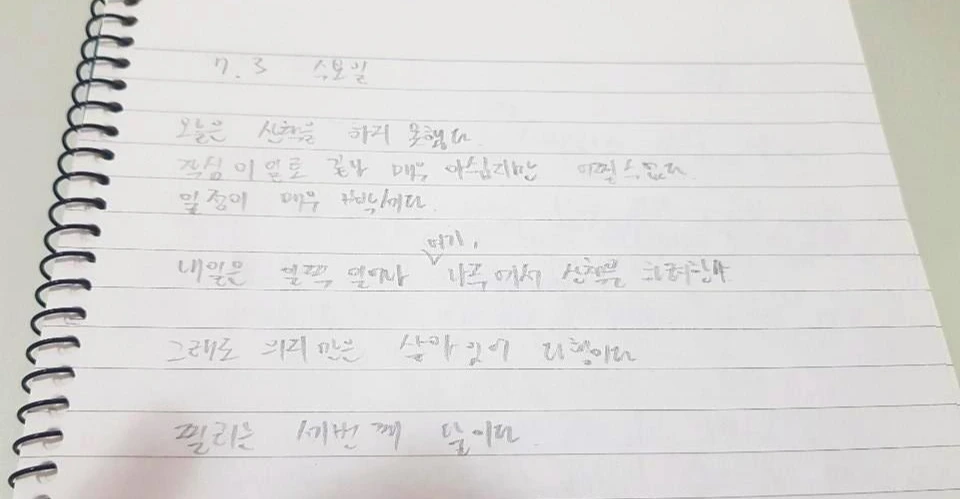 7.3 수요일
오늘은 산책을 하지 못했다.
작심이일로 끝나 매우 아쉽지만 어쩔 수 없다.
일정이 매우 니까다.
여기,
내일은 일찍 일어나 나주에서 산책을 하려한다
그래도 의지만은 살아있어 다행이다
필리는 세번째 달이다.